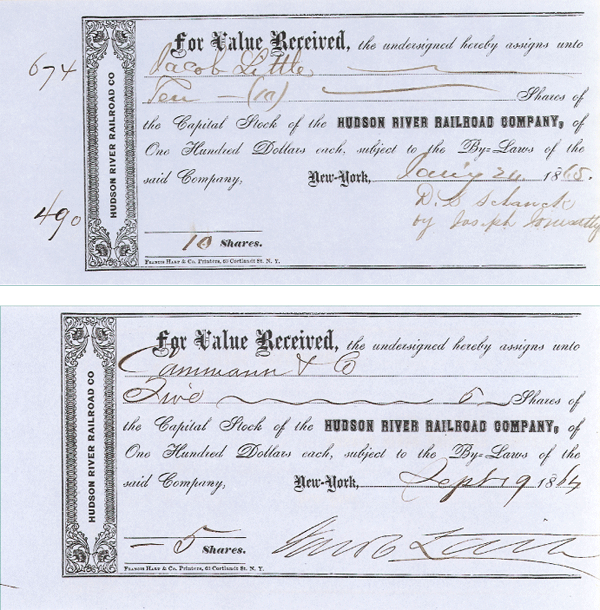 674
490
HUDSON RIVER RAILROAD CO
For Value Received, the undersigned hereby assigns unto
Jacob Little
Ten — (10) Shares of
the Capital Stock of the HUDSON RIVER RAILROAD COMPANY, of
One Hundred Dollars each, subject to the By=Laws of the
said Company, New-York, 1865.
by Joseph
10 Shares.
FRANCIS HART & CO. Printers, 63 Cortlandt St. N. Y.
HUDSON RIVER RAILROAD CO
For Value Received, the undersigned hereby assigns unto
Cammann & Co
Five 5 Shares of
the Capital Stock of the HUDSON RIVER RAILROAD COMPANY, of
One Hundred Dollars each, subject to the By=Laws of the
said Company, New-York, Sept 19 1864
— 5 Shares. Jacob Little
FRANCIS HART & CO. Printers, 63 Cortlandt St. N. Y.